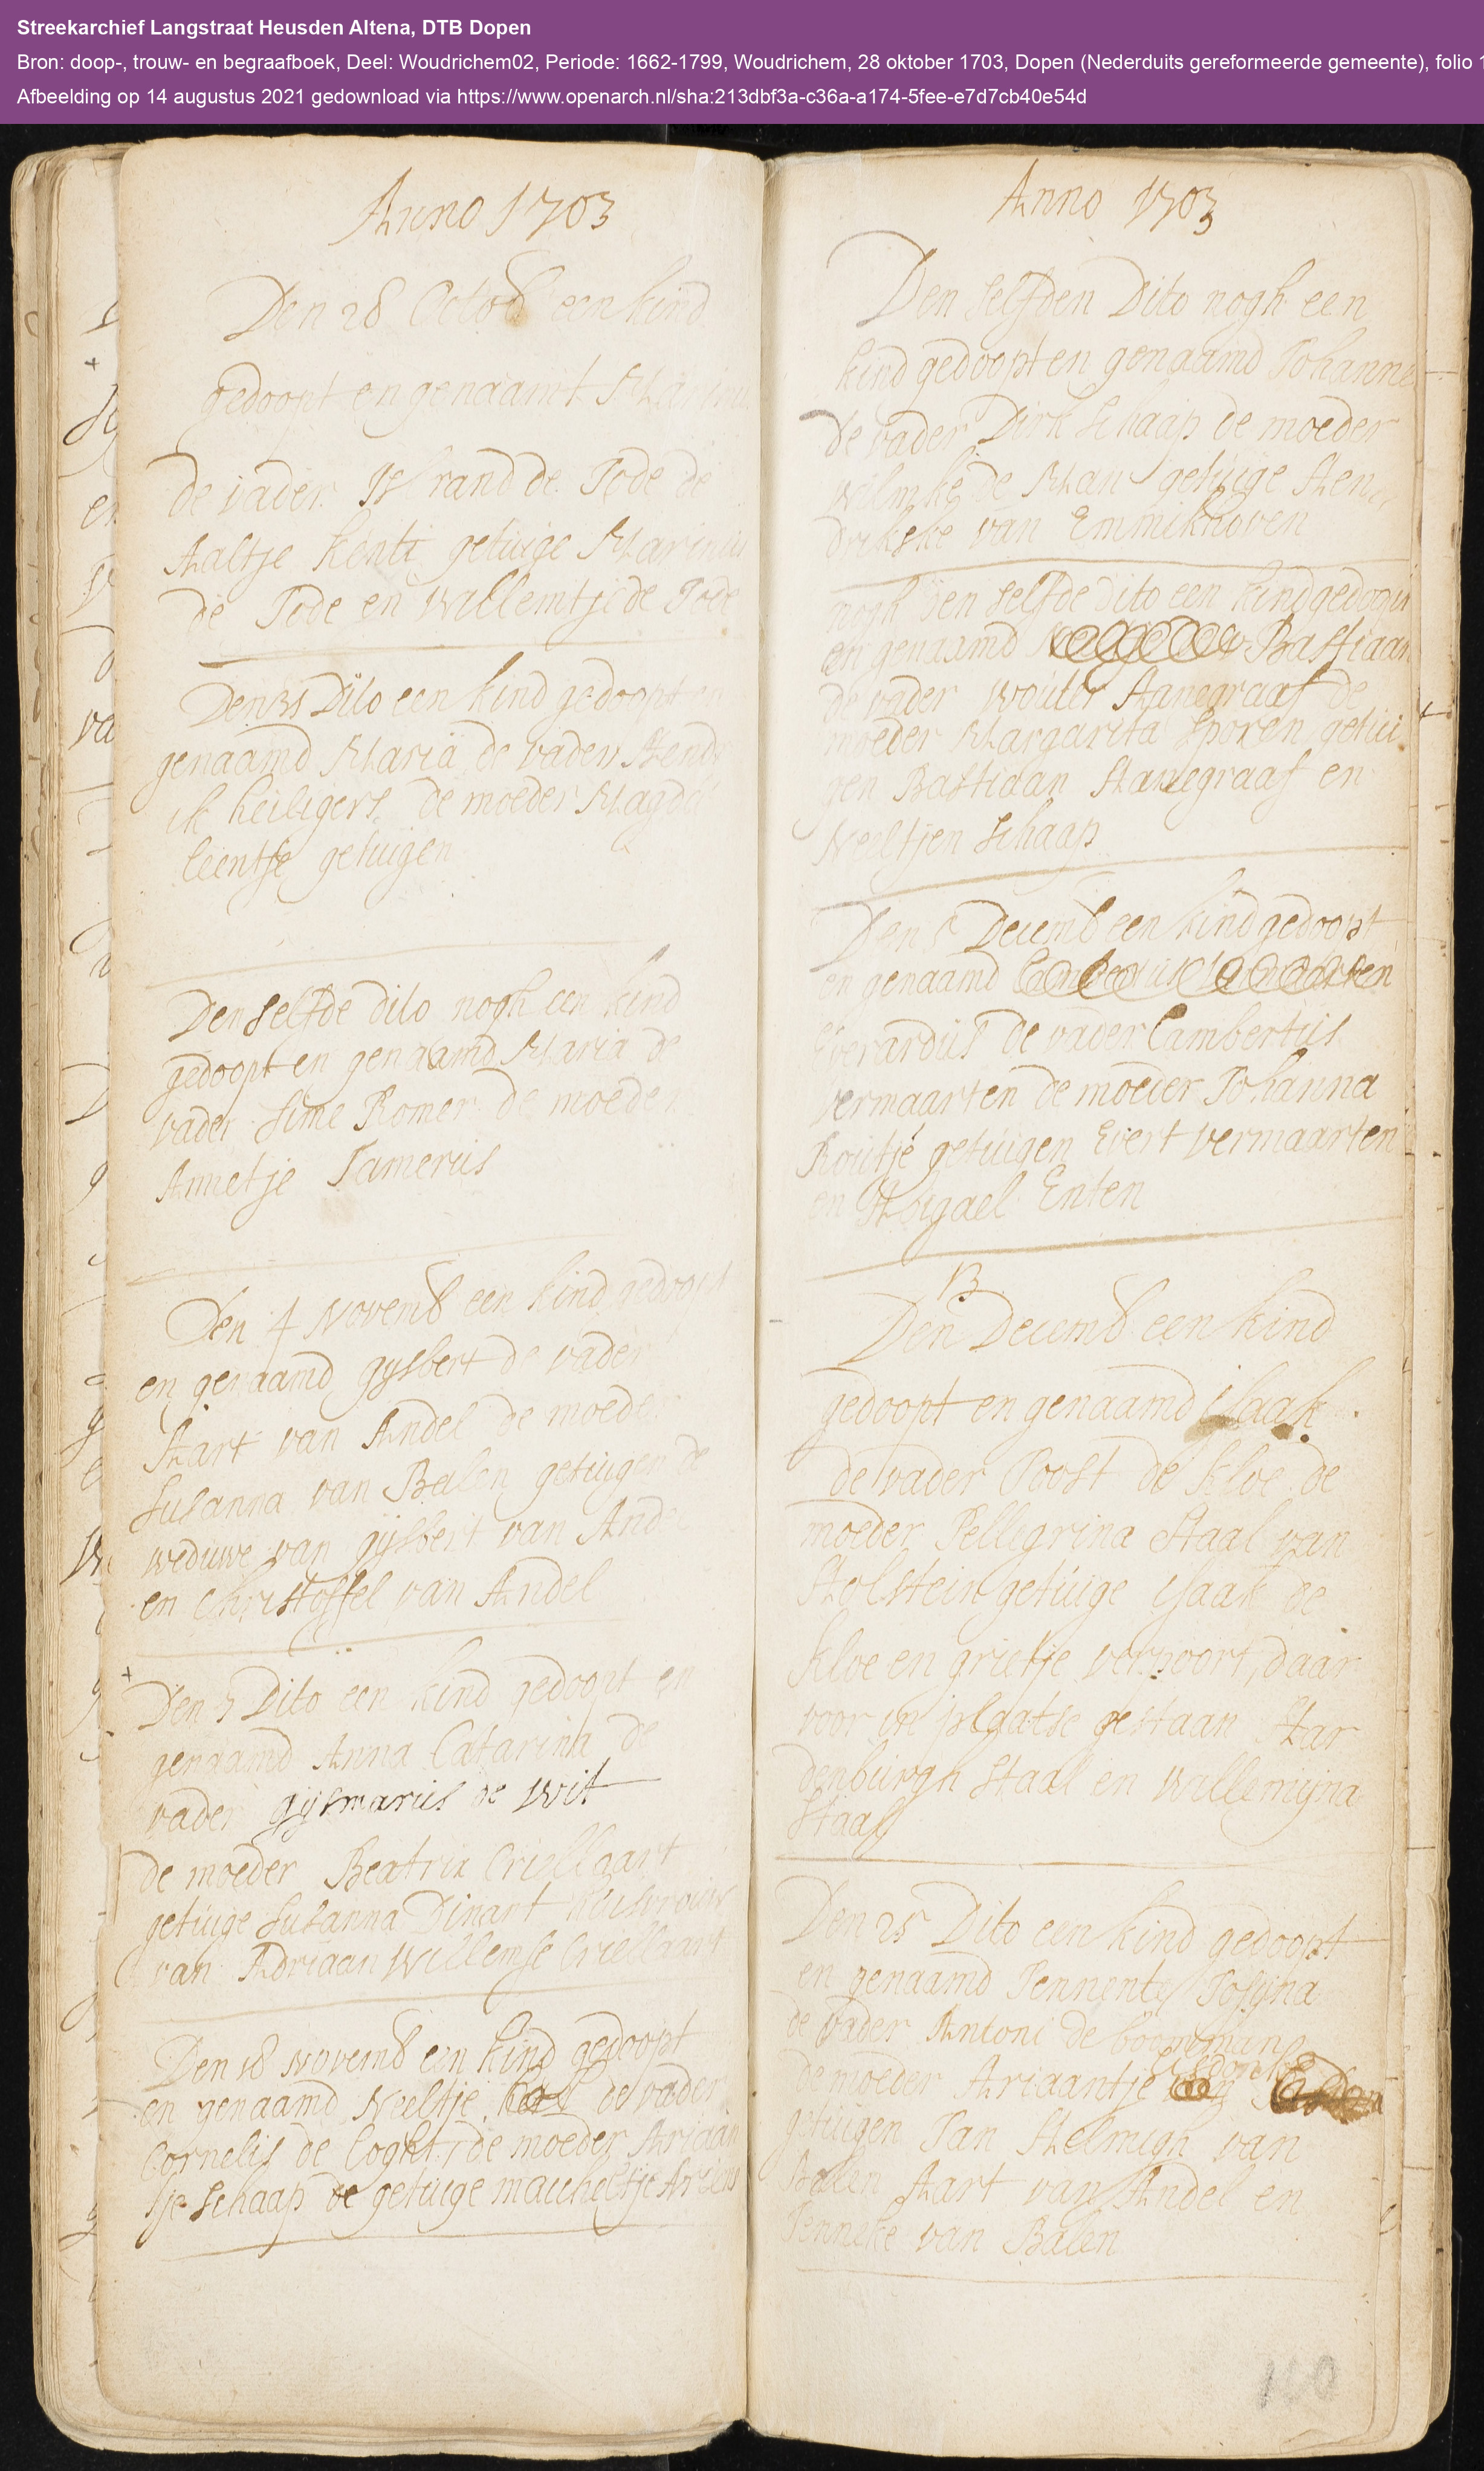 Streekarchief Langstraat Heusden Altena, DTB Dopen
Bron: doop-, trouw- en begraafboek, Deel: Woudrichem02, Periode: 1662-1799, Woudrichem, 28 oktober 1703, Dopen (Nederduits gereformeerde gemeente), folio 1
Afbeelding op 14 augustus 2021 gedownload via https://www.openarch.nl/sha:213dbf3a-c36a-a174-5fee-e7d7cb40e54d
Anno 1703
Den 28 Octob een kind
gedoopt en genaamt
de vader Isbrand de Jode de
Aaltje getuige Marinus
de Jode en Willemtje de Jode
Den 31 Dito een kind gedoopt en
genaamd Maria de vader Hendr
ik heiligers de moeder Magda
leentje getuigen
Den selfde dito nogh een kind
gedoopt en genaamd Maria de
vader Sime Romer de moeder
Annetje Jamerus
Den 4 Novemb een kind gedoopt
en genaamd gysbert de vader
Aart van Andel de moeder
Susanna van Balen getuigen de
weduwe van gijsbert van Andel
en Christoffel van Andel
Den 5 Dito een kind gedoopt en
genaamd Anna Catarina de
vader gijsmarus de Wit
de moeder Beatrix Criellaart
getuige Susanna Dinart huisvrouw
van Adriaan Willemse Criellaart
Den 18 Novemb een kind gedoopt
en genaamd Neeltje de vader
Cornelis de Coght de moeder Ariaan
tje Schaap de getuige machheltje Ariens
Anno 1703
Den selfden Dito nogh een
kind gedoopt en genaamd Johannes
de vader Dirk Schaap de moeder
Wilmke de Man getuige Hen
drikske van Emmikhoven
nogh den selfde dito een kind gedoopt
en genaamd Bastiaan
de vader Wouter Hanegraaf de
moeder Margarita Sporen getui
gen Bastiaan Hanegraaf en
Neeltjen Schaap
Den 5 Decemb een kind gedoopt
en genaamd
Everardus de vader Lambertus
vermaarten de moeder Johanna
Routje getuigen Evert vermaarten
en Abigael Enten
13
Den Decemb een kind
gedoopt en genaamd isaak
de vader Joost de Kloe de
moeder Pellegrina Staal van
Holstein getuige isaak de
Kloe en grietje verpoort, daar
voor in plaatse gestaan Har
denburgh Staal en Willemijna
Staal
Den 25 Dito een kind gedoopt
en genaamd Jennente Josyna
de vader Antoni de
de moeder Ariaantje
getuigen Jan Helmigh van
Balen Aart van Andel en
Jenneke van Balen
160